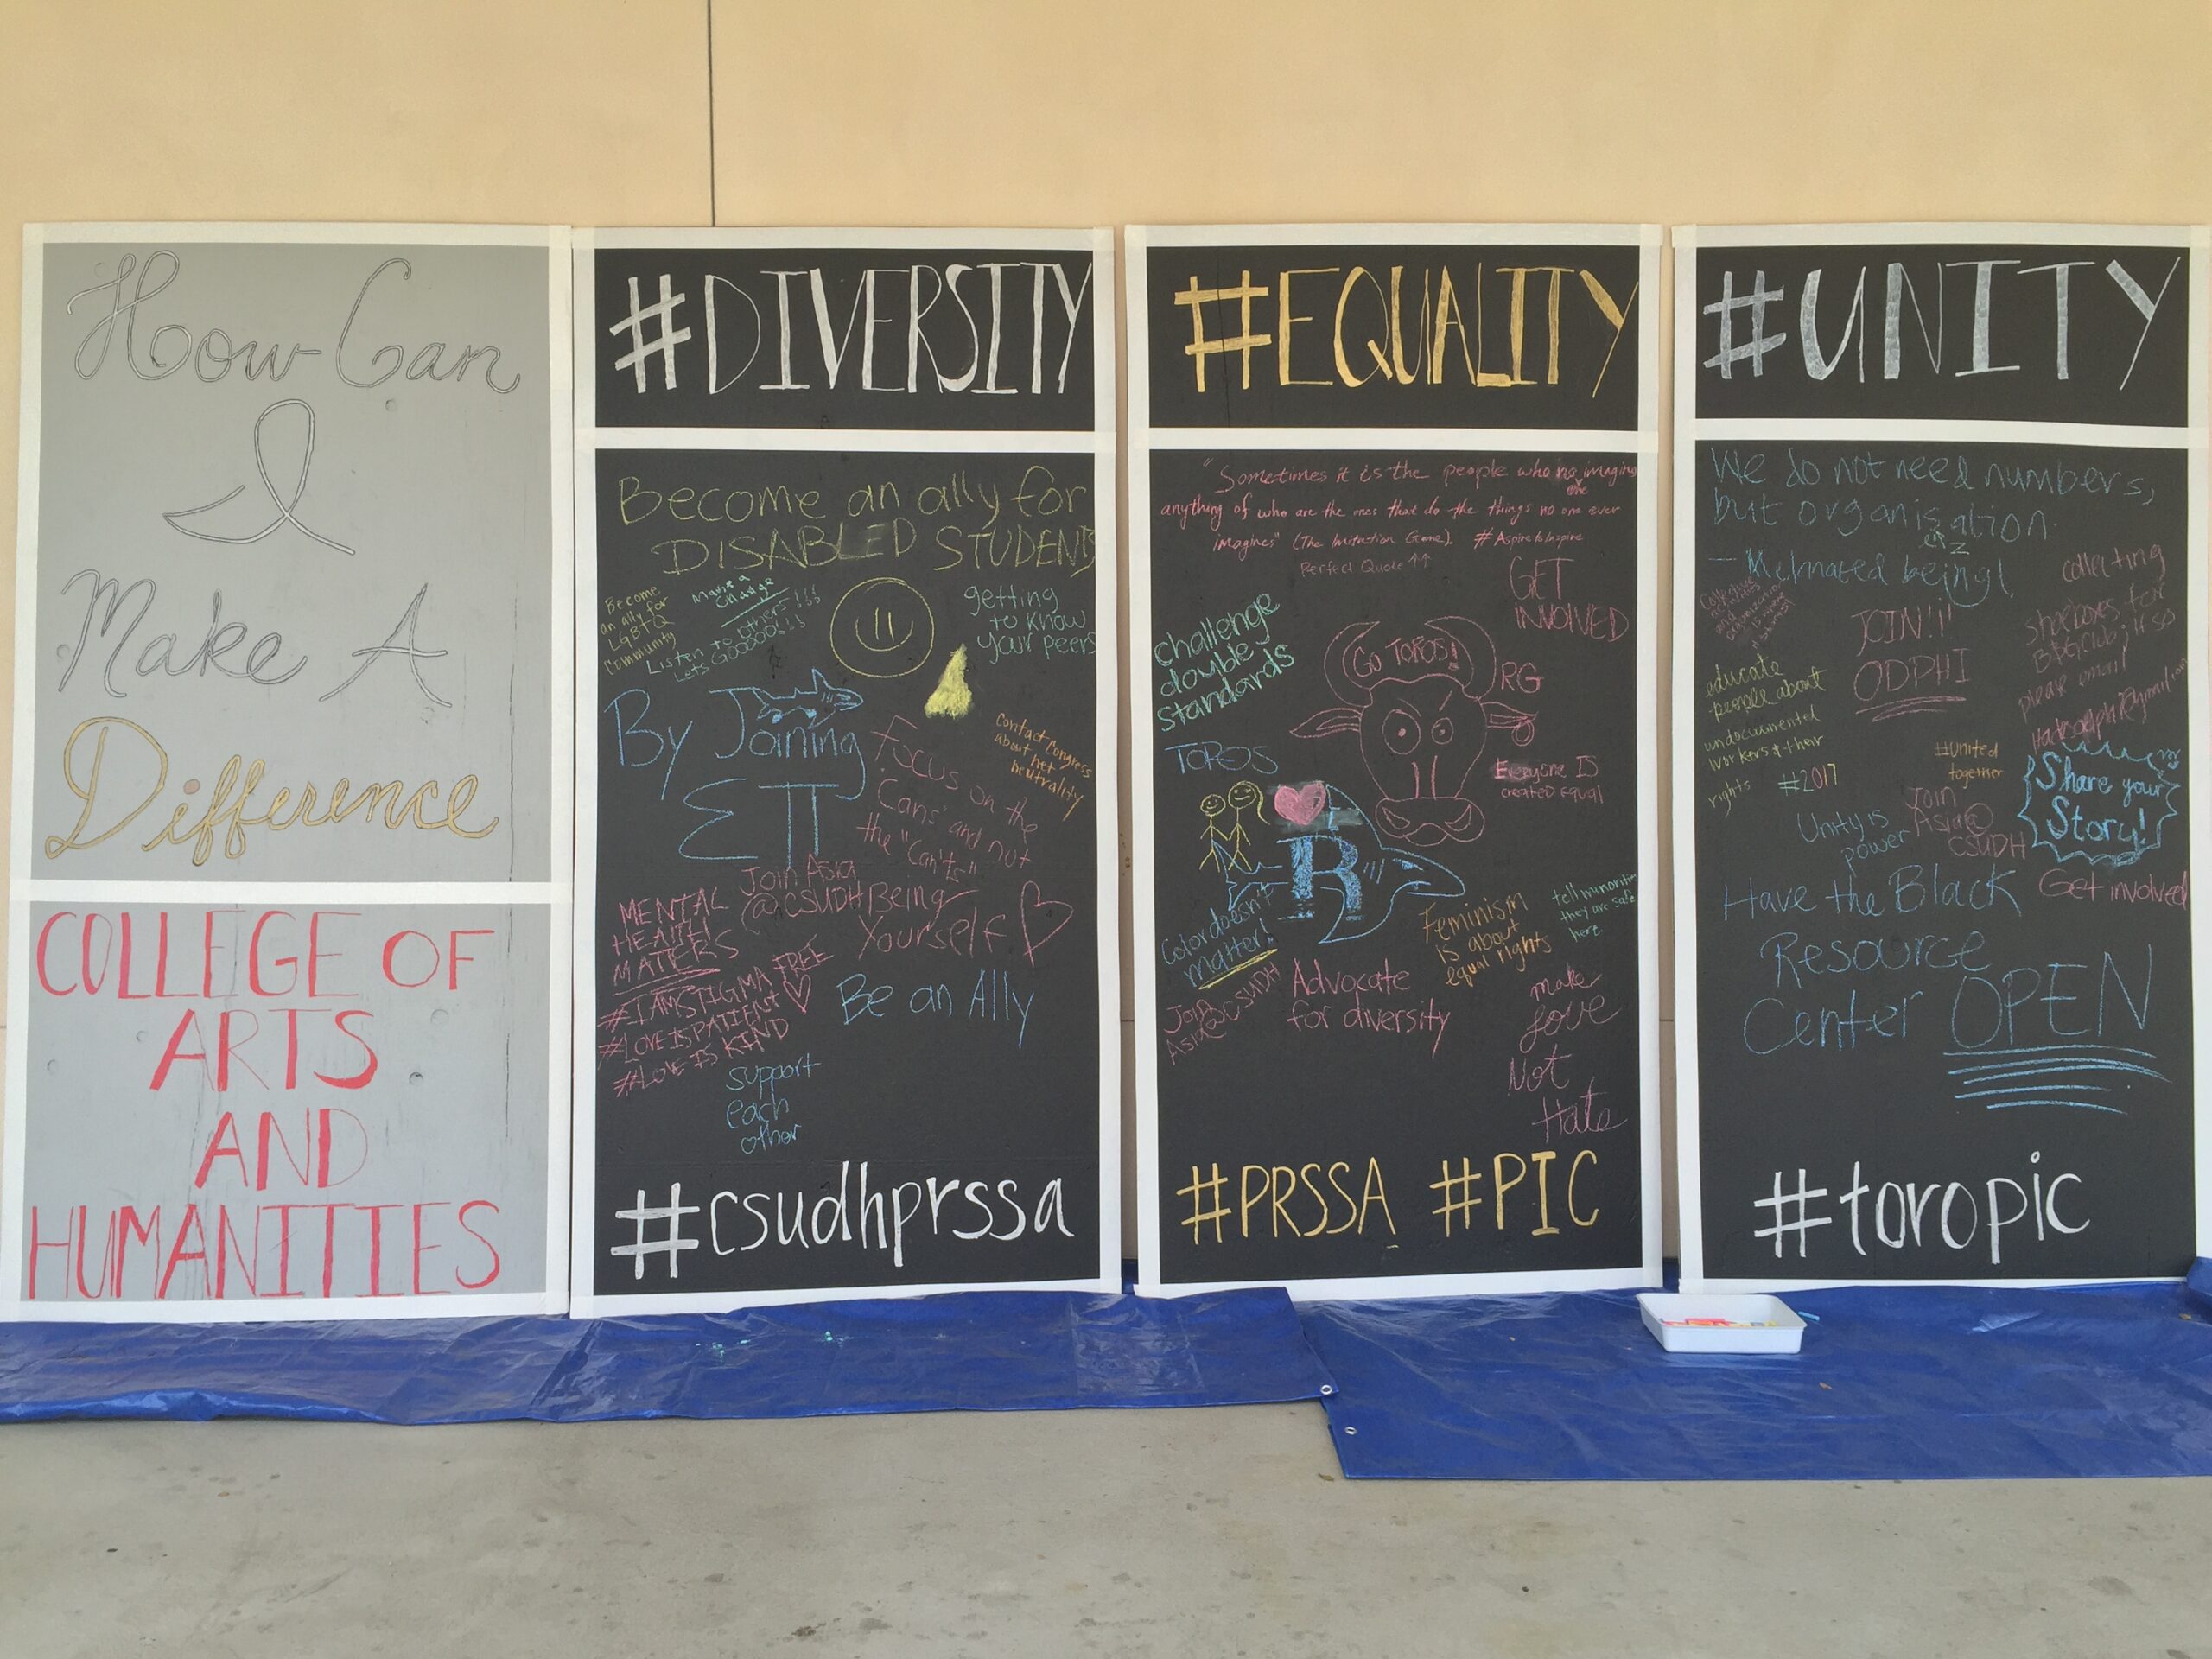 How Can
I
Make A
Difference
COLLEGE OF
ARTS
AND
HUMANITIES
#DIVERSITY
Become an ally for
DISABLED STUDENTS
Become
an ally for
LGBTQ
Community
Make a
Change
Listen to others!!!
Lets GOOOO!!!
getting
to know
your peers
By Joining
ΣΠ
Contact Congress
about net
neutrality
Focus on the
"Cans" and not
the "Can'ts"
Join Asia
@CSUDH
Being
Yourself
MENTAL
HEALTH
MATTERS
#IAMSTIGMA FREE
#LOVEISPATIENT
#LOVE IS KIND
Be an Ally
support
each
other
#csudhprssa
#EQUALITY
"Sometimes it is the people who no one imagines
anything of who are the ones that do the things no one ever
imagines" (The Imitation Game). #AspiretoInspire
Perfect Quote ↑↑
GET
INVOLVED
challenge
double
standards
GO TOROS!
RG
TOROS
Everyone IS
created Equal
R
Color doesn't
matter!
Feminism
is about
equal rights
tell minorities
they are safe
here
Join
Asia@CSUDH
Advocate
for diversity
make
love
Not
Hate
#PRSSA #PIC
#UNITY
We do not need numbers,
but organisation.
JOIN!!!
ODPHI
collecting
shoeboxes for
please email
educate
people about
undocumented
workers & their
rights
#2017
#united
together
Share your
Story!
Unity is
power
Join
Asia@
CSUDH
Get involved
Have the Black
Resource
Center OPEN
#toropic